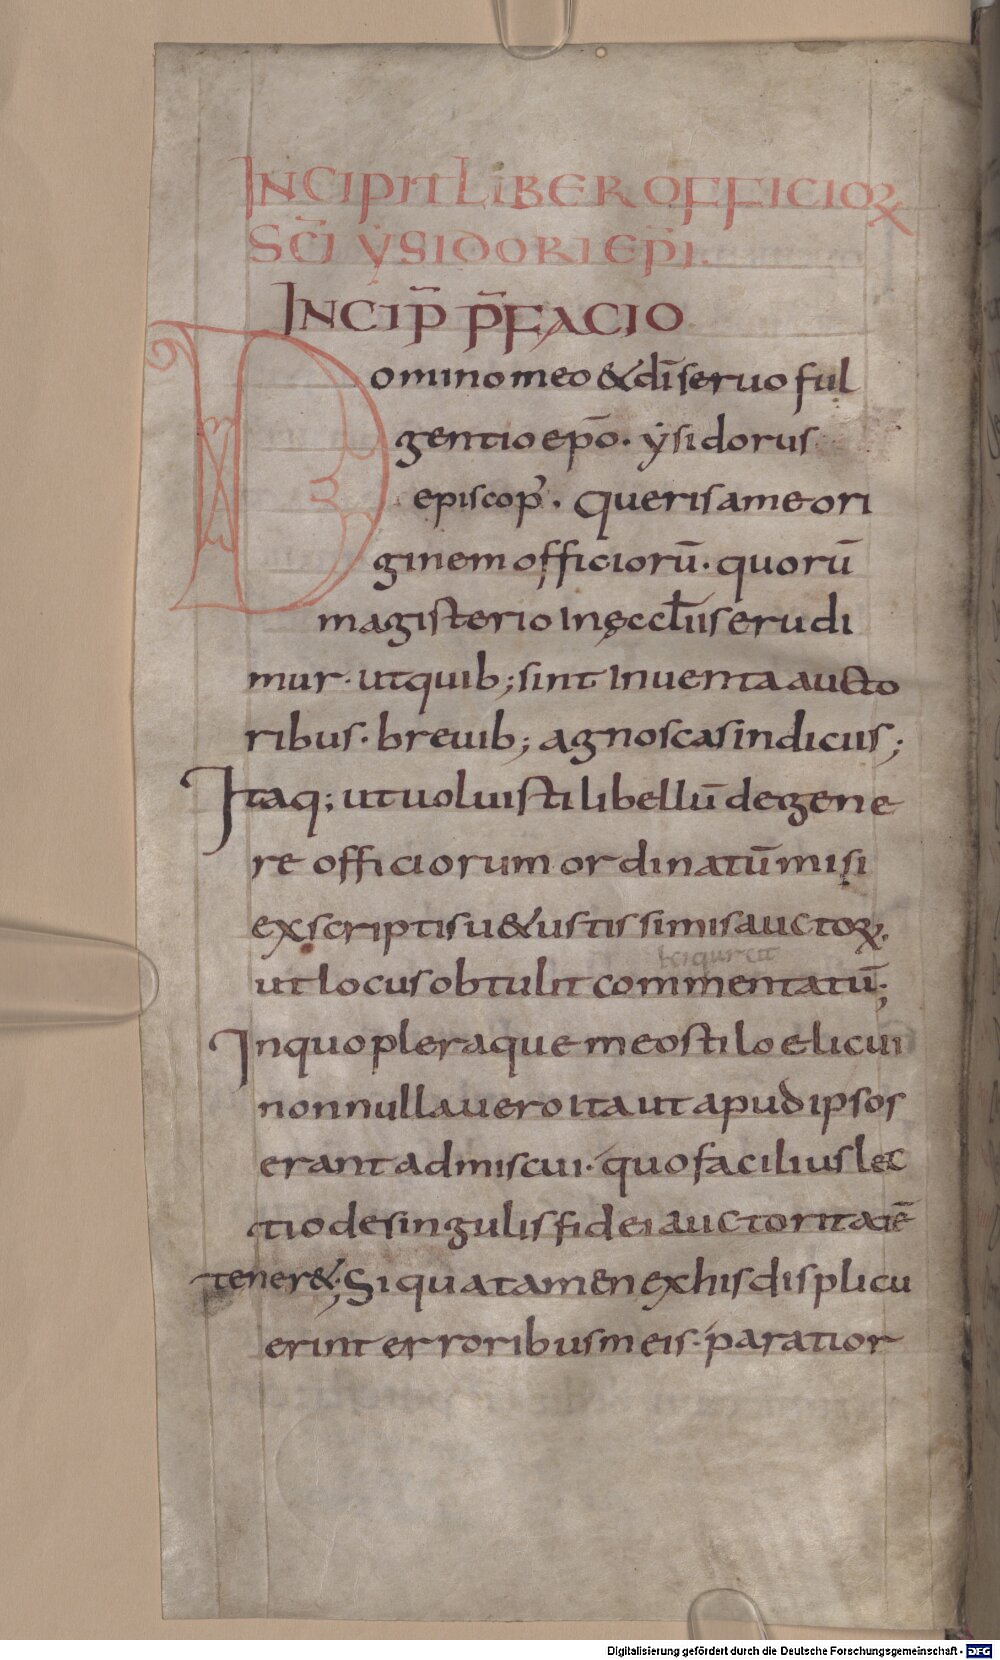 INCIPIT LIBER OFFICIOꝜ
SC̄I ẎSIDORI EP̄I.
INCIP̄ P̄FACIO
Domino meo & dī seruo ful
gentio ep̄o. ẏsidorus
episcop᾽. Queris a me ori
ginem officiorū. quorū
magisterio In ęccl̄iis erudi
mur. ut quib; sint Inuenta aucto
ribus. breuib; agnoscas indiciis;
Itaq; ut uoluisti libellū de gene
re officiorum ordinatū misi
ex scriptis uetustissimis auctoꝝ.
ut locus obtulit commentatū;
In quo pleraque meo stilo elicui
nonnulla uero ita ut apud ipsos
erant admiscui. quo facilius lec
tio de singulis fidei auctoritatē
tener&; Si qua tamen ex his displicu
erint erroribus meis. paratior
Digitalisierung gefördert durch die Deutsche Forschungsgemeinschaft - DFG